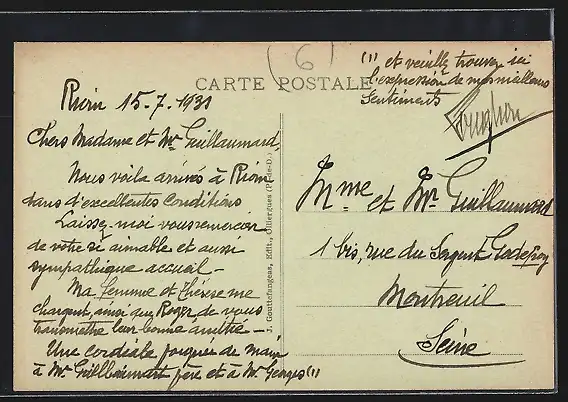 (6
CARTE POSTALE
(1) et veuillez trouver ici
l'expression de mes meilleurs
Sentiments
Riom 15-7-1931
Chers Madame et Mr Guillaumard,
Nous voila arrivés à Riom
dans d'excellentes Conditions
Laissez-moi vous remercier
de votre si aimable et aussi
sympathique accueil-
Ma femme et Thérèse me
chargent, ainsi que Roger de vous
transmettre leur bonne amitié-
Une cordiale poignée de main
à Mr Guillaumard père et à Mr Georges (1)
J. Gouttefangeas, Edit., Olliergues (P.-de-D.)
Mme et Mr Guillaumard
1 bis, rue du Sergent Godefroy
Montreuil
Seine